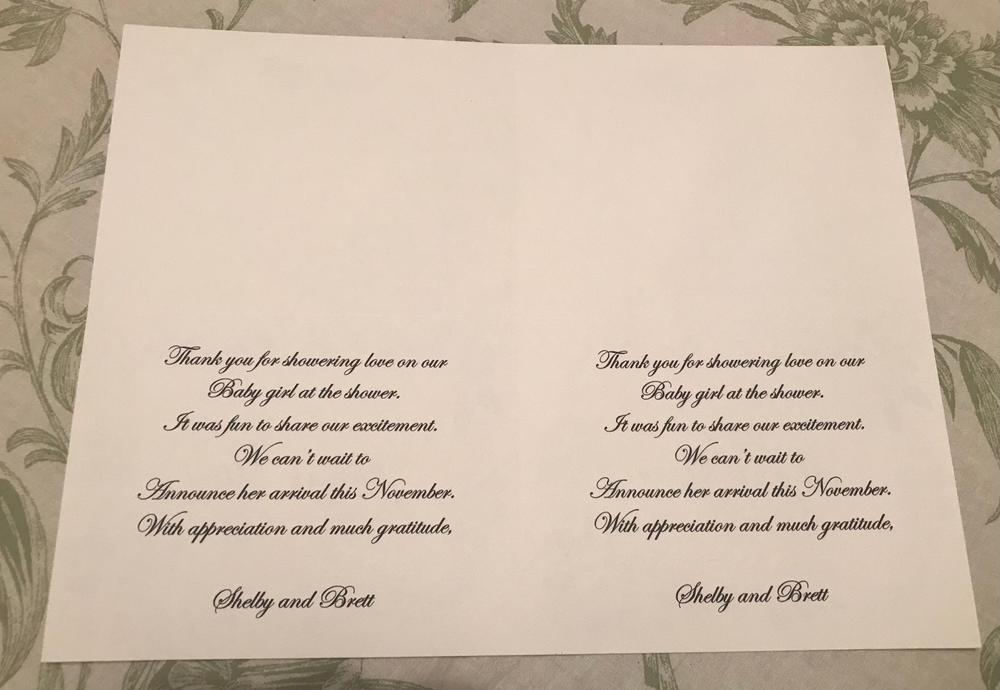 Thank you for showering love on our
Baby girl at the shower.
It was fun to share our excitement.
We can't wait to
Announce her arrival this November.
With appreciation and much gratitude,
Shelby and Brett
Thank you for showering love on our
Baby girl at the shower.
It was fun to share our excitement.
We can't wait to
Announce her arrival this November.
With appreciation and much gratitude,
Shelby and Brett